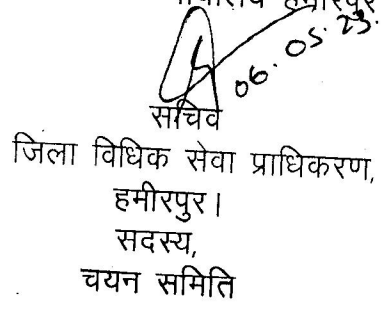 हमीरपुर
06.05.23.
सचिव
जिला विधिक सेवा प्राधिकरण,
हमीरपुर।
सदस्य,
चयन समिति